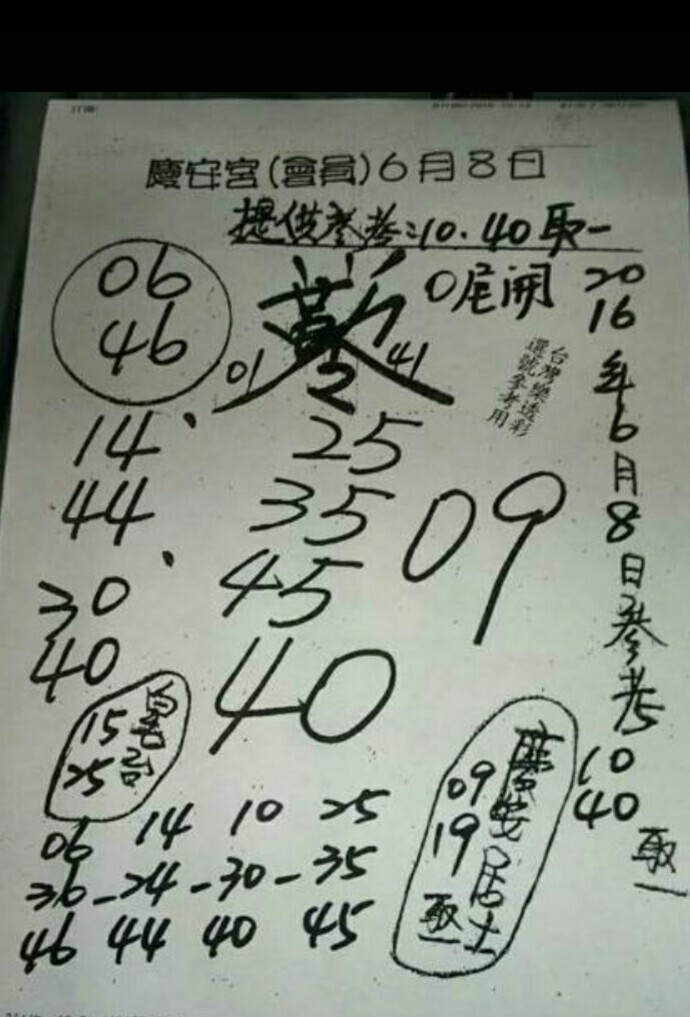 慶安宮(會員)6月8日
提供參考:10.40取一
06
46
01
41
0尾開
台灣樂透彩
選號參考用
2016年6月8日參考
10
40
取一
14
44
25
35
45
09
30
40
40
15
25
慶安居士
09
19
取一
06 14 10 25
36-24-30-35
46 44 40 45